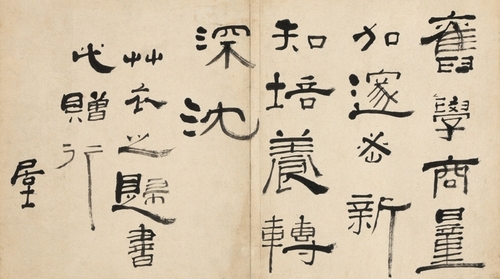 舊學商量
加邃密新
知培養轉
深沈
艸衣之歸書
贈行
居士